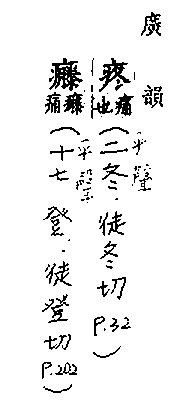 廣韻
疼 痛也(二冬·徒冬切 P.32) 平聲
癳 痛癳(十七登·徒登切 P.202) 平聲